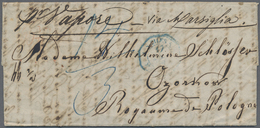 pr Vapore via Marsiglia.
Madame Wilhelmine Schlösser
Ozorkow
Royaume de Pologne